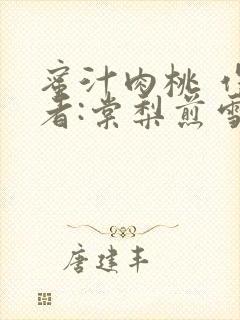 蜜汁肉桃 作
者:棠梨煎雪
唐建丰